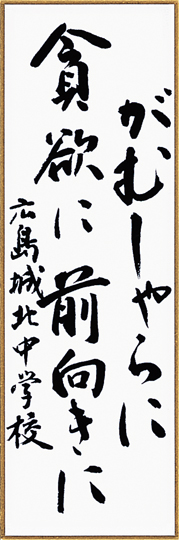 がむしゃらに
貪欲に前向きに
広島城北中学校